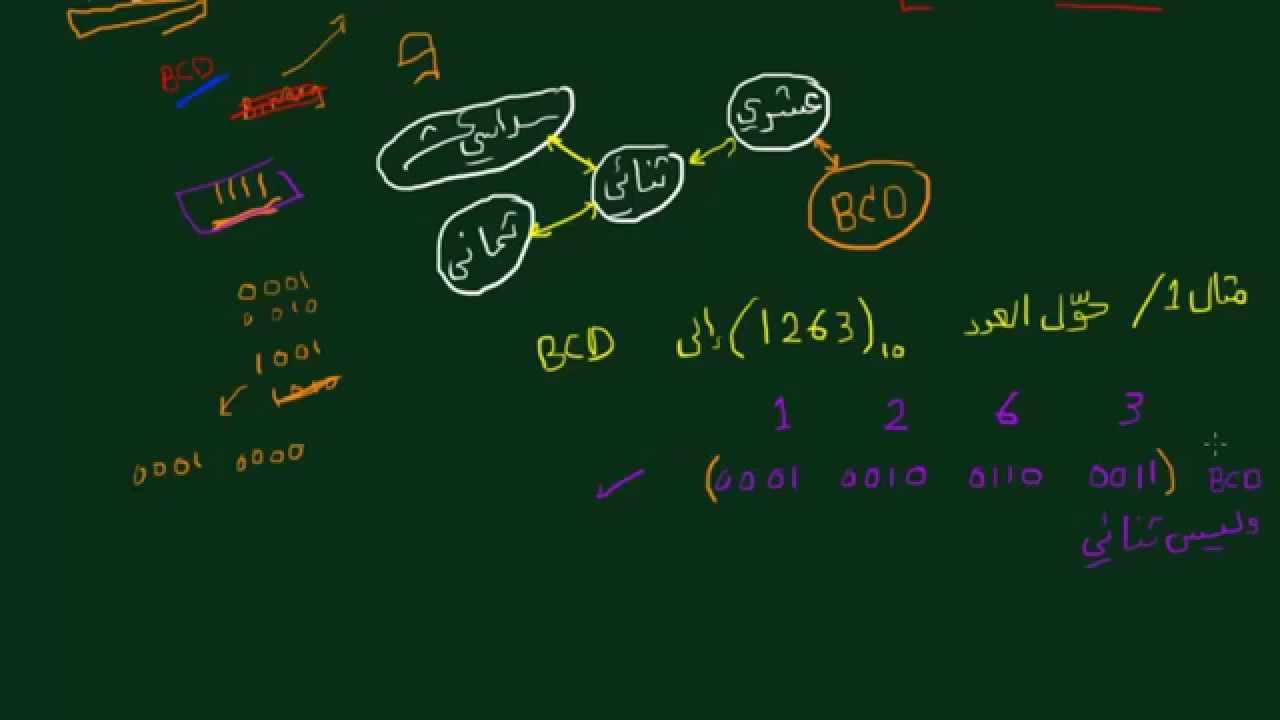 BCD
Binary
9
عشري
سداسي عشر
ثنائي
BCD
ثماني
1111
0001
0010
1001
1010
0001 0000
مثال 1/ حوّل العدد (1263)10 إلى BCD
1 2 6 3
(0001 0010 0110 0011) BCD
وليس ثنائي